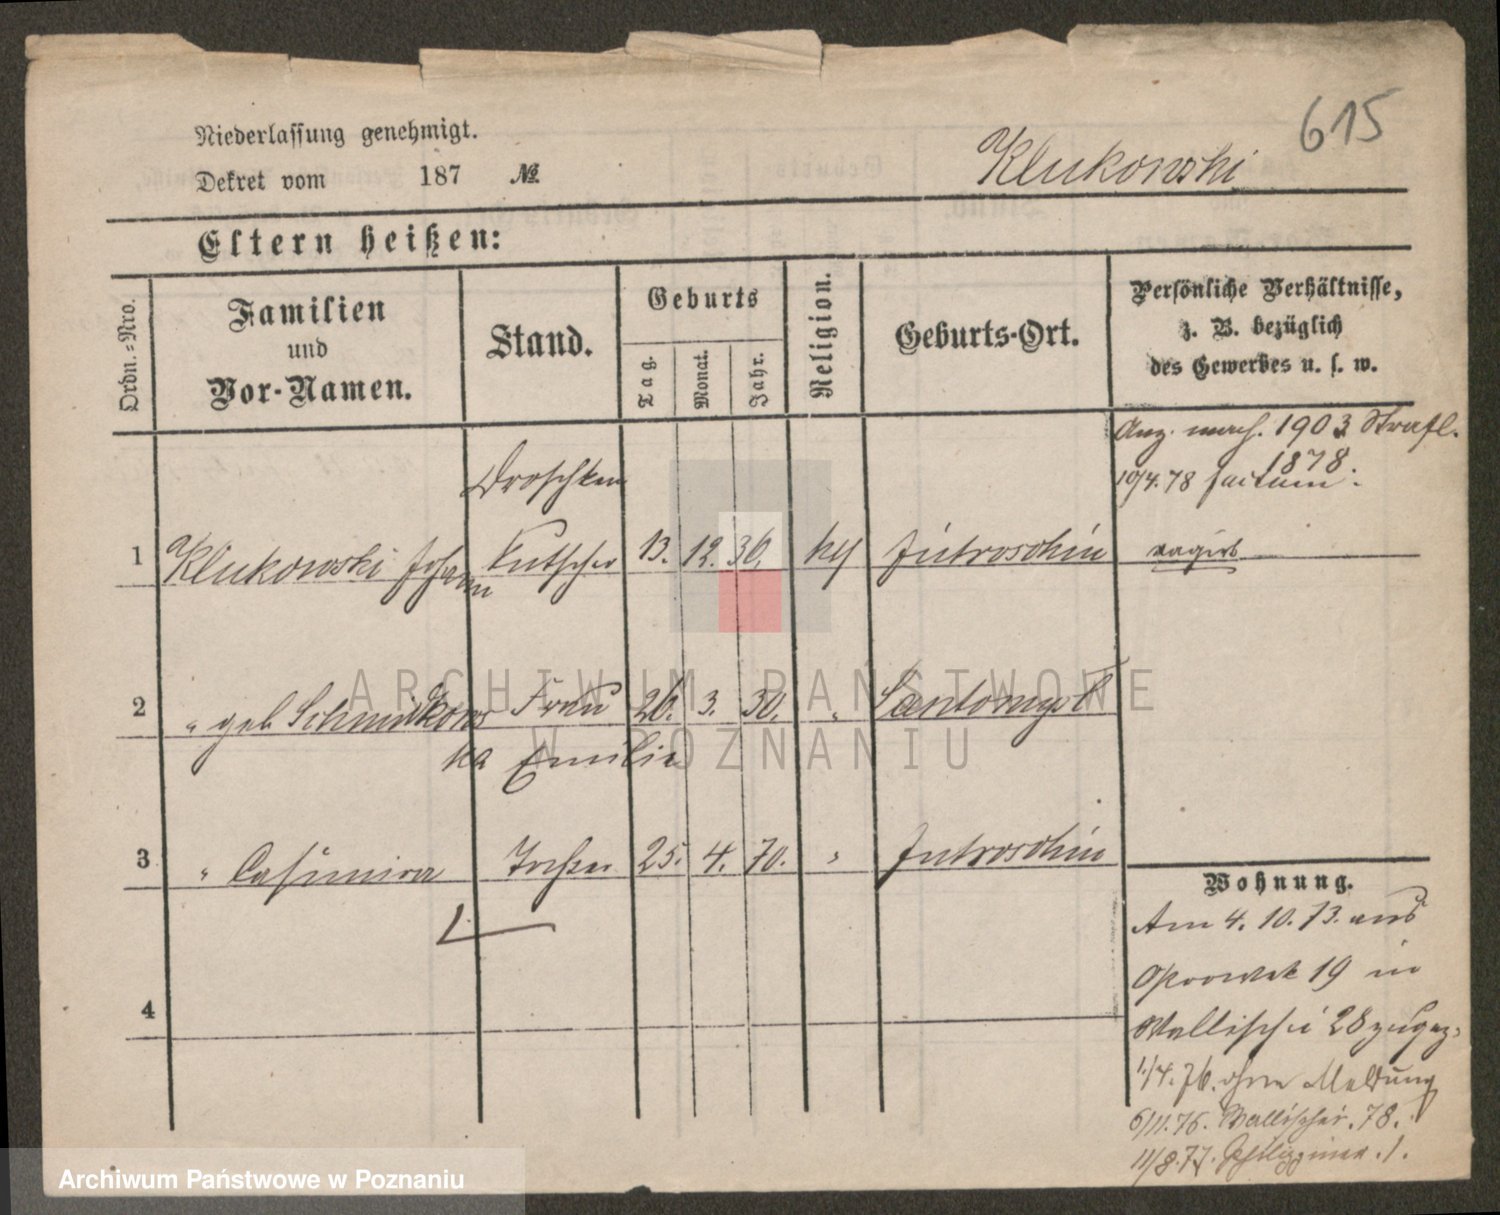 615
Niederlassung genehmigt.
Dekret vom 187 №
Klukowski
Eltern heißen:
Ordn.-Nro.
Familien
und
Vor-Namen.
Stand.
Geburts
Tag.
Monat.
Jahr.
Religion.
Geburts-Ort.
Persönliche Verhältnisse,
z. B. bezüglich
des Gewerbes u. s. w.
1903
1878.
10/4.78
Droschken
1 Klukowski Johann Kutscher 13. 12. 36. Jutroschin
2 " geb Schmidkows Frau 26. 3. 30. " Santomysl
ka Emilie
3 " Casimira Tochter 25. 4. 70. " Jutroschin
4
Wohnung.
Am 4. 10. 73. aus
19 in
Wallischei 28 zugez.
1/4. 76. ohne Meldung
6/11.76. Wallischei. 78.
11/8.77. 1.
ARCHIWUM PAŃSTWOWE
W POZNANIU
Archiwum Państwowe w Poznaniu